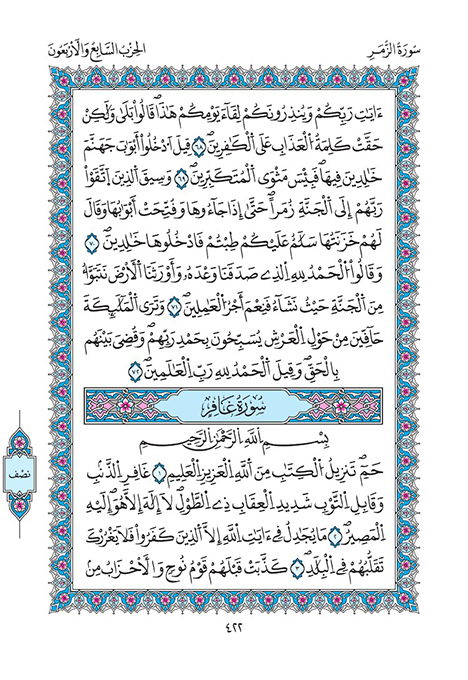 سُورَةُ الزُّمَرِ
الحِزْبُ السَّابِعُ وَالْأَرْبَعُونَ
ءَايَٰتِ رَبِّكُمْ وَيُنذِرُونَكُمْ لِقَآءَ يَوْمِكُمْ هَٰذَا قَالُوا۟ بَلَىٰ وَلَٰكِنْ
حَقَّتْ كَلِمَةُ الْعَذَابِ عَلَى الْكَٰفِرِينَ ٦٨ قِيلَ ادْخُلُوٓا۟ أَبْوَٰبَ جَهَنَّمَ
خَٰلِدِينَ فِيهَا فَبِئْسَ مَثْوَى الْمُتَكَبِّرِينَ ٦٩ وَسِيقَ الَّذِينَ اتَّقَوْا۟
رَبَّهُمْ إِلَى الْجَنَّةِ زُمَرًا حَتَّىٰٓ إِذَا جَآءُوهَا وَفُتِّحَتْ أَبْوَٰبُهَا وَقَالَ
لَهُمْ خَزَنَتُهَا سَلَٰمٌ عَلَيْكُمْ طِبْتُمْ فَادْخُلُوهَا خَٰلِدِينَ ٧٠
وَقَالُوا۟ الْحَمْدُ لِلهِ الَّذِي صَدَقَنَا وَعْدَهُۥ وَأَوْرَثَنَا الْأَرْضَ نَتَبَوَّأُ
مِنَ الْجَنَّةِ حَيْثُ نَشَآءُ فَنِعْمَ أَجْرُ الْعَٰمِلِينَ ٧١ وَتَرَى الْمَلَٰٓئِكَةَ
حَآفِّينَ مِنْ حَوْلِ الْعَرْشِ يُسَبِّحُونَ بِحَمْدِ رَبِّهِمْ وَقُضِيَ بَيْنَهُم
بِالْحَقِّ وَقِيلَ الْحَمْدُ لِلهِ رَبِّ الْعَٰلَمِينَ ٧٢
سُورَةُ غَافِرٍ
بِسْمِ اللَّهِ الرَّحْمَٰنِ الرَّحِيمِ
حَمٓ تَنزِيلُ الْكِتَٰبِ مِنَ اللَّهِ الْعَزِيزِ الْعَلِيمِ ١ غَافِرِ الذَّنۢبِ
وَقَابِلِ التَّوْبِ شَدِيدِ الْعِقَابِ ذِي الطَّوْلِ لَآ إِلَٰهَ إِلَّا هُوَ إِلَيْهِ
الْمَصِيرُ ٢ مَا يُجَٰدِلُ فِيٓ ءَايَٰتِ اللَّهِ إِلَّا الَّذِينَ كَفَرُوا۟ فَلَا يَغْرُرْكَ
تَقَلُّبُهُمْ فِي الْبِلَٰدِ ٣ كَذَّبَتْ قَبْلَهُمْ قَوْمُ نُوحٍ وَالْأَحْزَابُ مِنۢ
نصف
٤٢٢